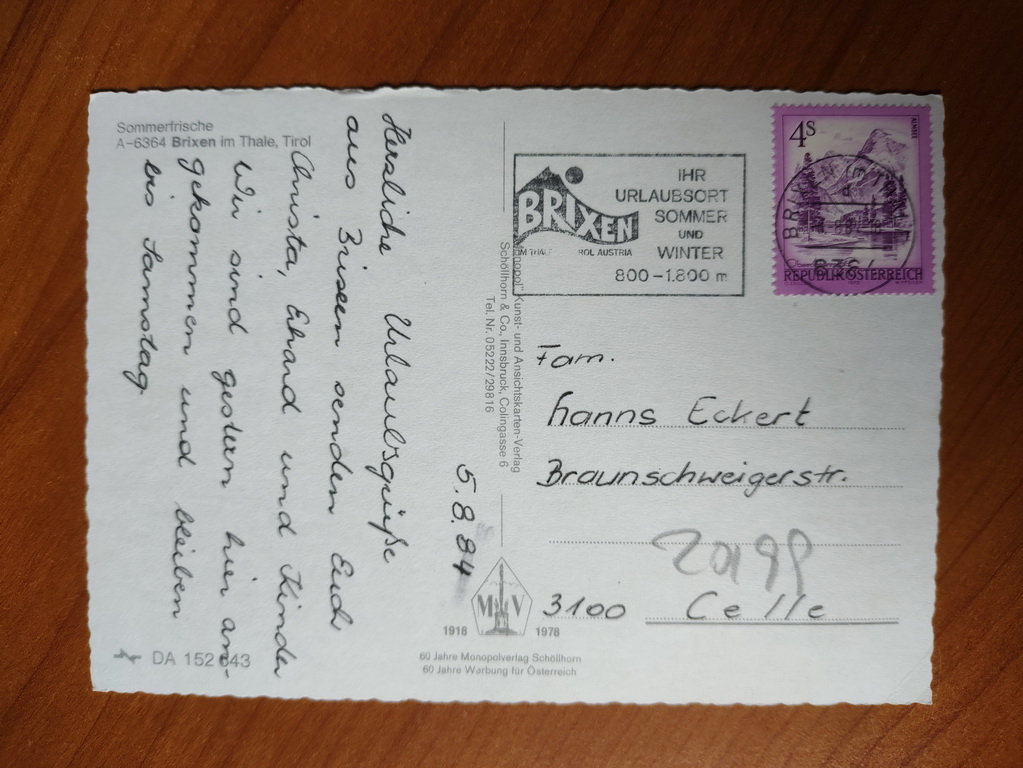 Sommerfrische
A-6364 Brixen im Thale, Tirol
5.8.84
Herzliche Urlaubsgrüße
aus Brixen senden Euch
Christa, Ehard und Kinder
Wir sind gestern hier an-
gekommen und bleiben
bis Samstag.
DA 152 643
"Monopol" Kunst- und Ansichtskarten-Verlag
Schöllhorn & Co., Innsbruck, Colingasse 6
Tel. Nr. 05222/29816
MV
1918 1978
60 Jahre Monopolverlag Schöllhorn
60 Jahre Werbung für Österreich
BRIXEN
IHR
URLAUBSORT
SOMMER
UND
WINTER
800-1.800 m
4S
ALMSEE
REPUBLIK ÖSTERREICH
BRIXEN
Fam.
Hanns Eckert
Braunschweigerstr.
3100 Celle